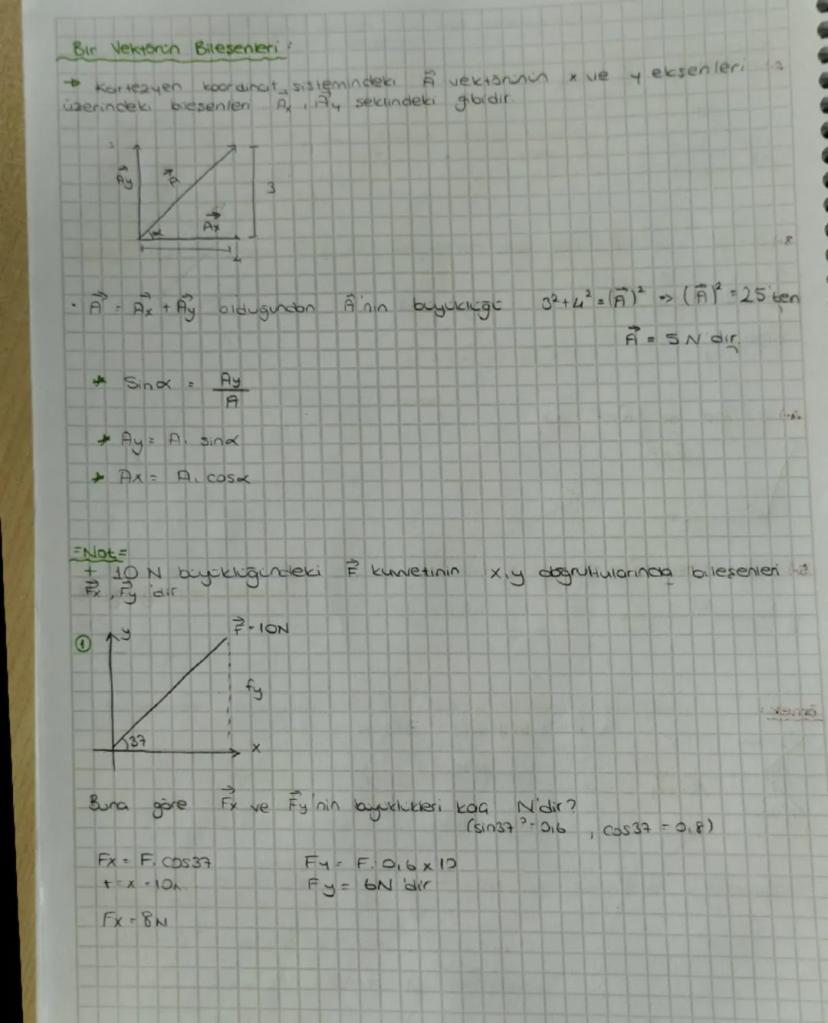 Bir Vektörün Bileşenleri:
→ Kartezyen koordinat sistemindeki A⃗ vektörünün x ve y eksenleri
üzerindeki bileşenleri Ax, A⃗y şeklindeki gibidir.
A⃗y
A⃗
3
α
A⃗x
4
· A⃗ = A⃗x + A⃗y olduğundan A⃗'nın büyüklüğü 3²+4² = (A⃗)² => (A⃗)² = 25'ten
A⃗ = 5N dir.
* Sinα = Ay/A
* Ay = A. sinα
* Ax = A. cosα
=Not=
+ 10 N büyüklüğündeki F⃗ kuvvetinin x,y doğrultularında bileşenleri
F⃗x, F⃗y'dir
① y
F⃗=10N
fy
37
x
Buna göre F⃗x ve F⃗y'nin büyüklükleri kaç N'dir?
(sin37°=0,6 , cos37=0,8)
Fx = F. cos37 Fy = F. 0,6 x 10
Fy = 6N'dir
Fx = 8N